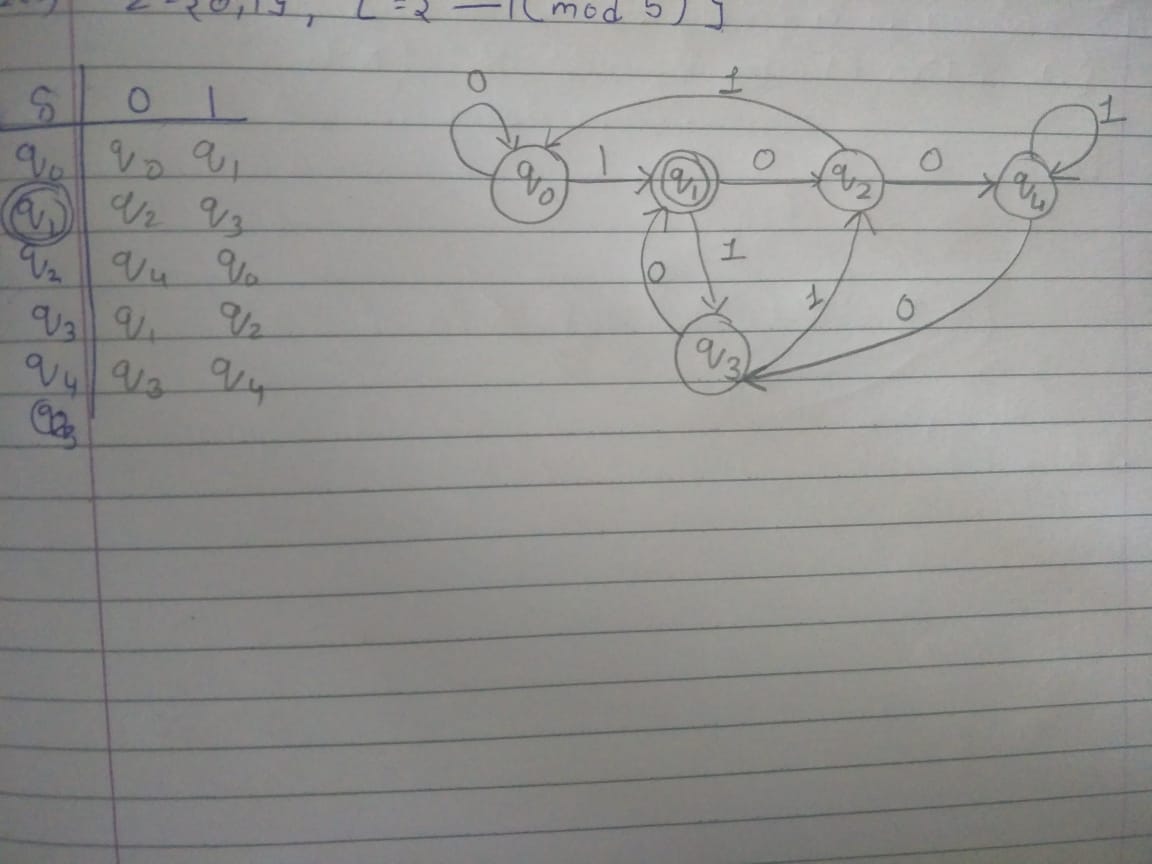 Σ={0,1}, L = 2 — 1 (mod 5) ]
δ 0 1
q0 q0 q1
q1 q2 q3
q2 q4 q0
q3 q1 q2
q4 q3 q4
0 1 1
q0 1 q1 0 q2 0 q4
0 1 1 0
q3